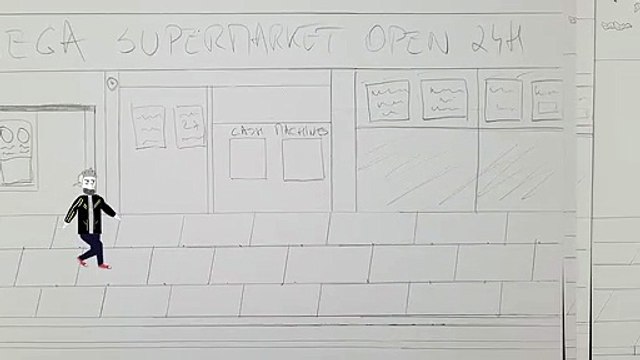 EGA SUPERMARKET OPEN 24H
CASH MACHINES
24